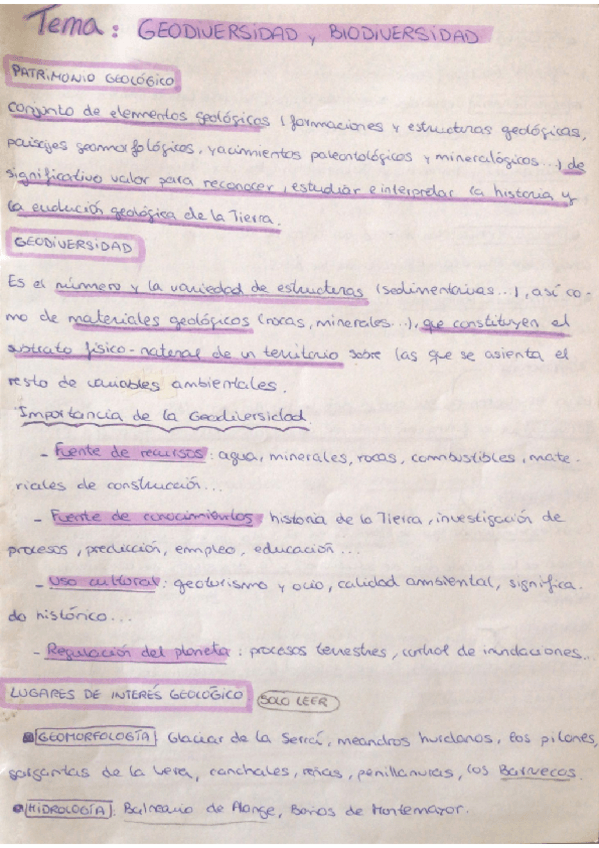 Tema: GEODIVERSIDAD y BIODIVERSIDAD
PATRIMONIO GEOLÓGICO
conjunto de elementos geológicos (formaciones y estructuras geológicas,
paisajes geomorfológicos, yacimientos paleontológicos y mineralógicos...) de
significativo valor para reconocer, estudiar e interpretar la historia y
la evolución geológica de la Tierra.
GEODIVERSIDAD
Es el número y la variedad de estructuras (sedimentarias...), así co-
mo de materiales geológicos (rocas, minerales...), que constituyen el
sustrato físico-natural de un territorio sobre las que se asienta el
resto de variables ambientales.
Importancia de la Geodiversidad.
- Fuente de recursos: agua, minerales, rocas, combustibles, mate-
riales de construcción...
- Fuente de conocimientos: historia de la Tierra, investigación de
procesos, predicción, empleo, educación...
- Uso cultural: geoturismo y ocio, calidad ambiental, significa-
do histórico...
- Regulación del planeta: procesos terrestres, control de inundaciones...
LUGARES DE INTERÉS GEOLÓGICO SOLO LEER
GEOMORFOLOGÍA: Glaciar de la Serrá, meandros hurdanos, los pilones,
gargantas de la Vera, canchales, rañas, penillanuras, los Barruecos.
HIDROLOGÍA: Balneario de Alange, Baños de Montemayor.